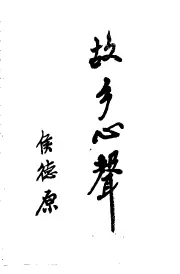 故乡心聲
侯德原